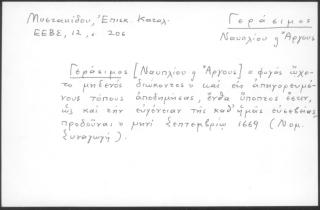 Μυστακίδου, Ἐπισκ. Καταλ.
ΕΕΒΣ, 12, σ 206
Γεράσιμος
Ναυπλίου ἢ Ἄργους
Γεράσιμος [Ναυπλίου ἢ Ἄργους] ὁ φυγὰς ᾤχε-
το μηδενὸς διώκοντος καὶ εἰς ἀπηγορευμέ-
νους τόπους ἀποδημήσας, ἔνθα ὕποπτος ἐστιν,
ὡς καὶ τὴν εὐγένειαν τῆς καθ' ἡμᾶς εὐσεβείας
προδοῦναι μηνὶ Σεπτεμβρίῳ 1669 (Νομ.
Συναγωγή).